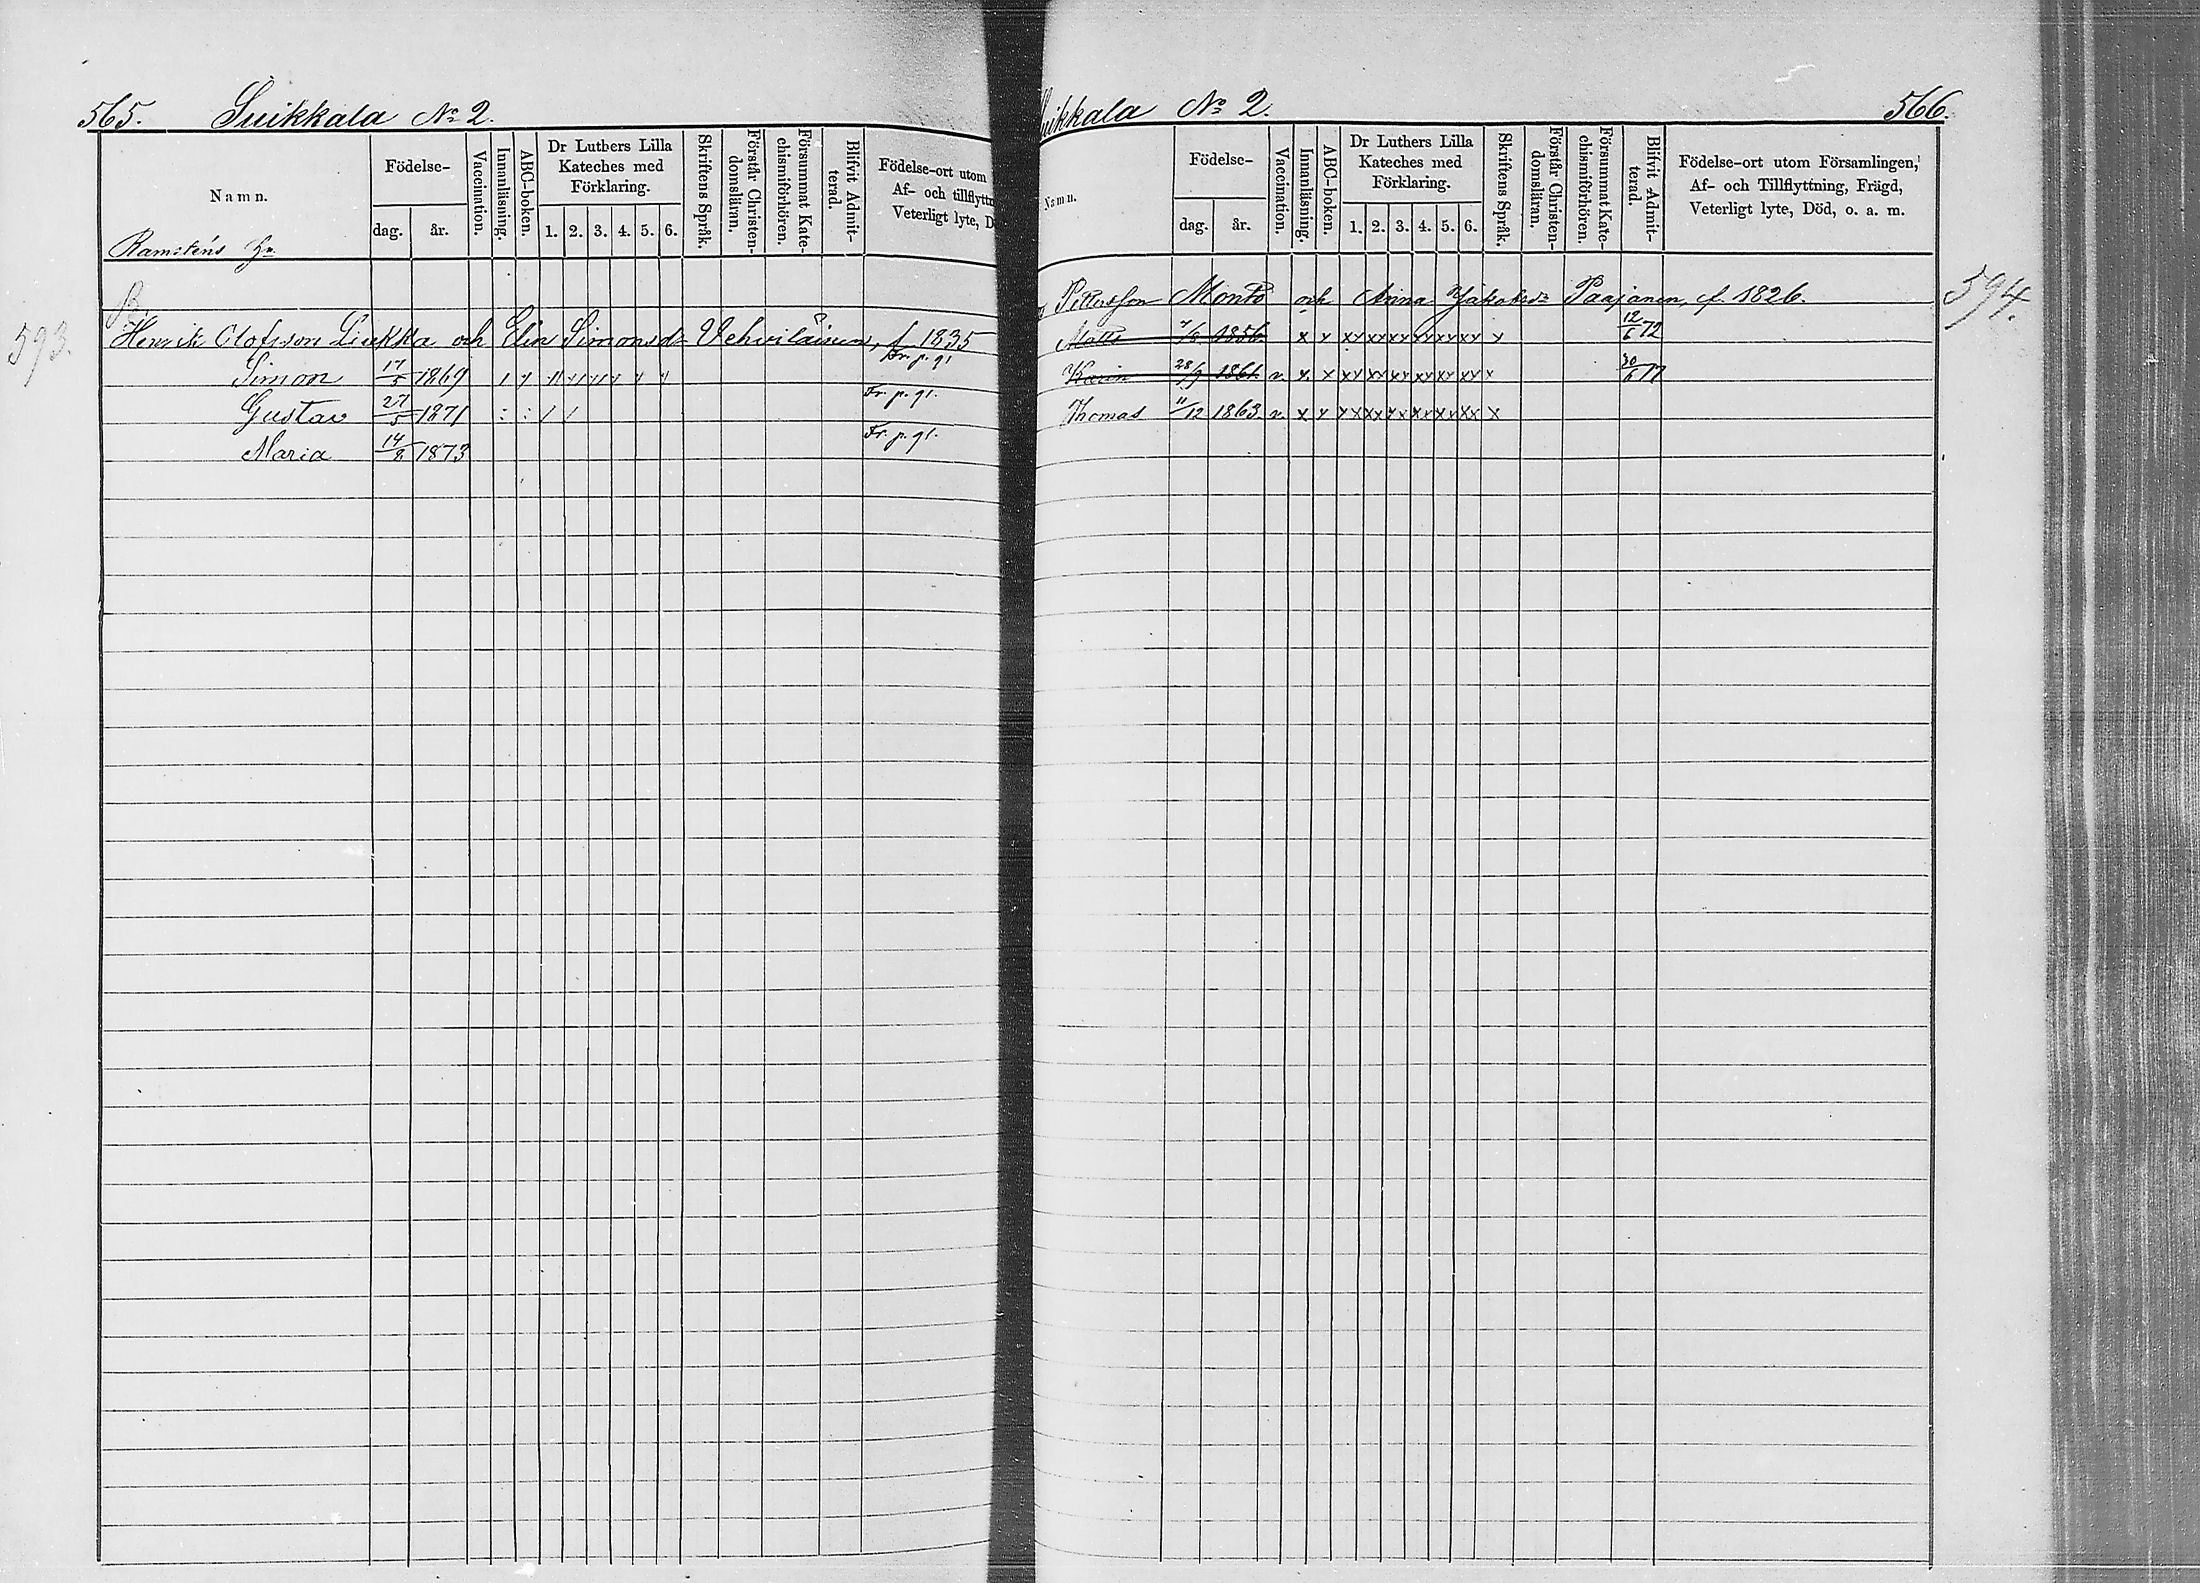 565. Suikkala No 2.
Namn.
Födelse-
dag. år.
Vaccination.
Innanläsning.
ABC-boken.
Dr Luthers Lilla
Kateches med
Förklaring.
1. 2. 3. 4. 5. 6.
Skriftens Språk.
Förstår Christen-
domsläran.
Försummat Kate-
chismiförhören.
Blifvit Admit-
terad.
Födelse-ort utom
Af- och tillflyttn
Veterligt lyte, D
593.
Henrik Olofsson Liukka och Elin Simonsdr Vehviläinen, f. 1835
Simon 17/5 1869 Fr. p. 91
Gustav 27/5 1871 Fr. p. 91.
Maria 14/8 1873 Fr. p. 91.
uikkala No 2. 566.
Namn.
Födelse-
dag. år.
Vaccination.
Innanläsning.
ABC-boken.
Dr Luthers Lilla
Kateches med
Förklaring.
1. 2. 3. 4. 5. 6.
Skriftens Språk.
Förstår Christen-
domsläran.
Försummat Kate-
chismiförhören.
Blifvit Admit-
terad.
Födelse-ort utom Församlingen,
Af- och Tillflyttning, Frägd,
Veterligt lyte, Död, o. a. m.
594.
Pettersson Monto och Anna Jakobsdr Paajanen, f. 1826.
Matts 1856 x x xx xx xx xx xx xx x 12/6 72
Karin 28/9 1861 v. x x xx xx xx xx xx xx x 30/6 77
Thomas 11/12 1863 v. x x xx xx xx xx xx xx x